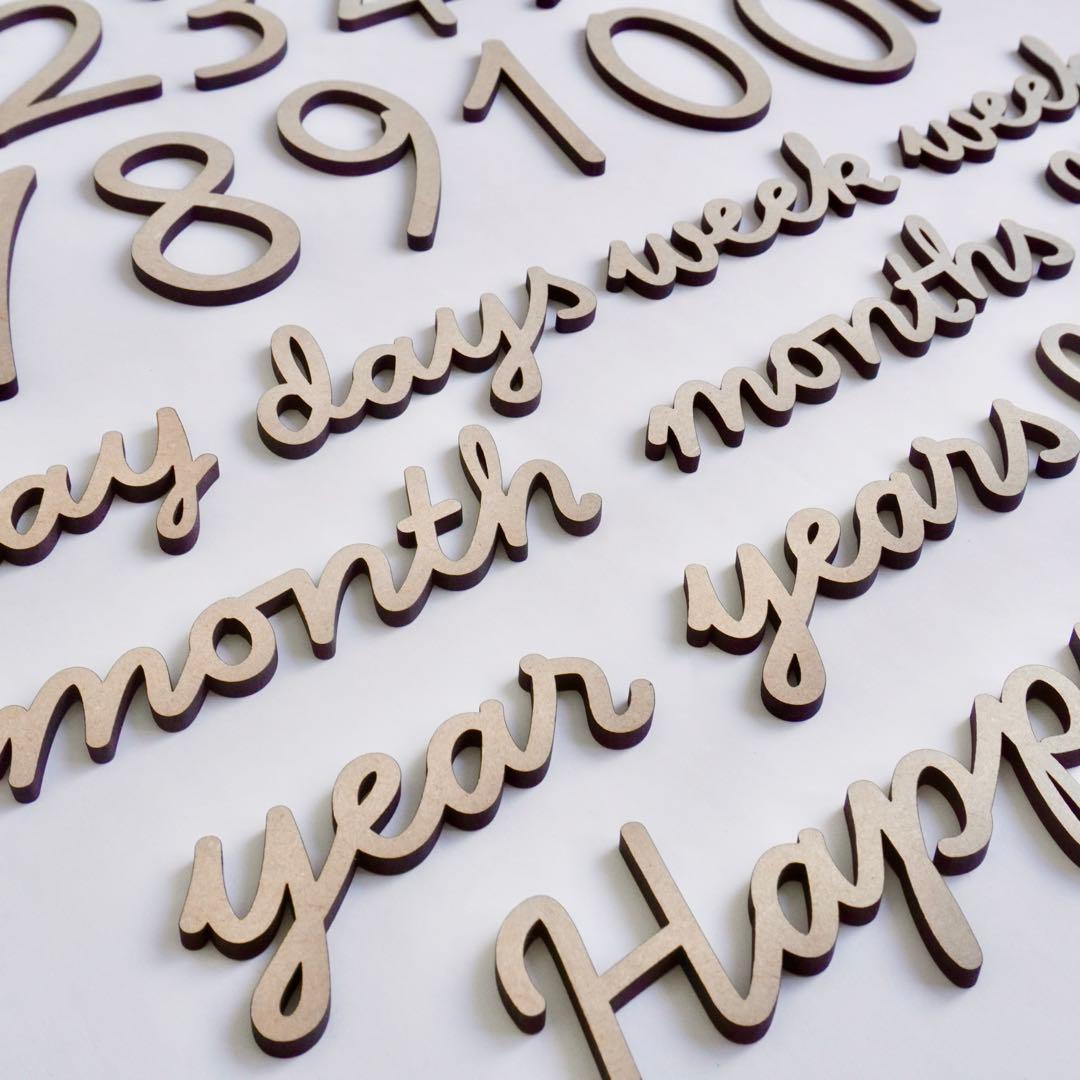 2 3 4
7 8 9 1 0 0
day days week week
month months
year years
Happy